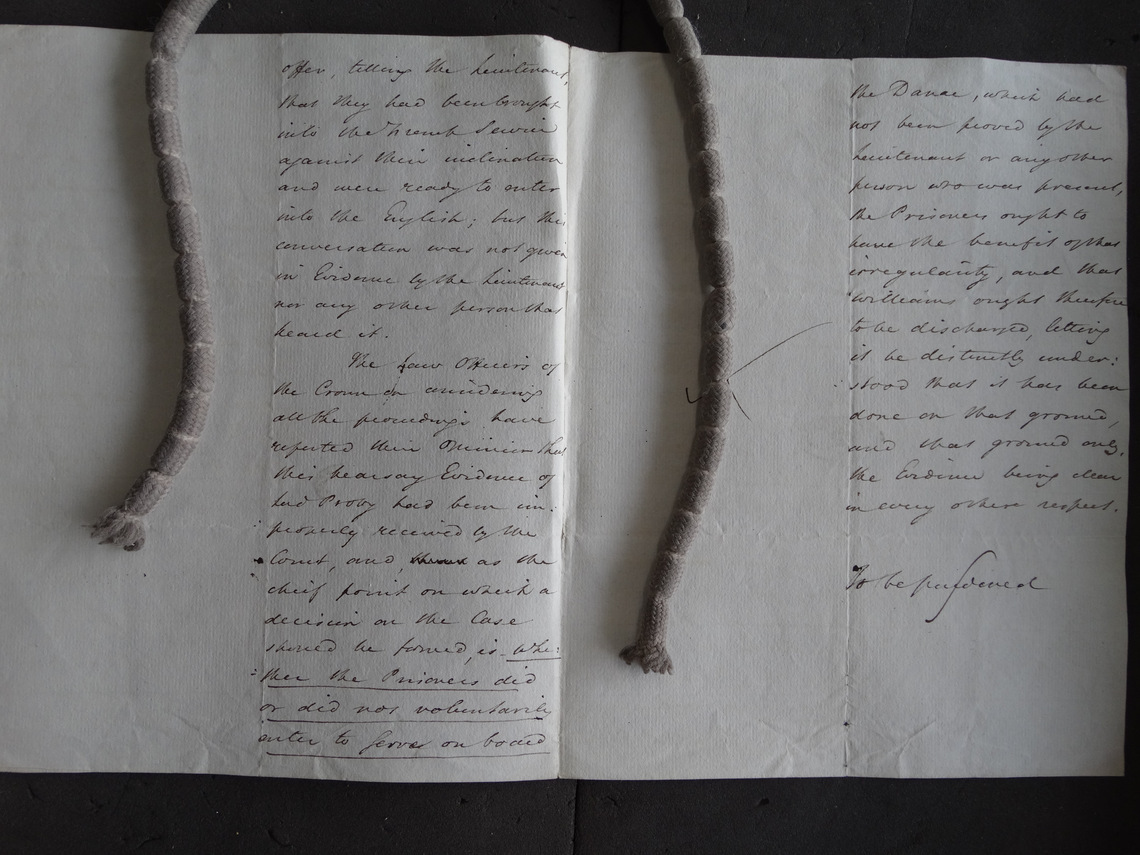 offer, telling the Lieutenant,
that they had been brought
into the French Service
against their inclination
and were ready to enter
into the English; but this
conversation was not given
in Evidence by the Lieutenant
nor any other person that
heard it.
The Law Officers of
the Crown on considering
all the proceedings have
reported their Opinion that
this hearsay Evidence of
Lord Proby had been im:
:properly received by the
Court, and, as the
cheif point on which a
decision on the Case
should be formed, is - whe:
:ther the Prisoners did
or did not voluntarily
enter to serve on board
the Danae, which had
not been proved by the
Lieutenant or any other
person who was present,
the Prisoners ought to
have the benefit of that
irregularity, and that
Williams ought therefore
to be discharged, letting
it be distinctly under:
:stood that it has been
done on that ground,
and that ground only,
the Evidence being clear
in every other respect.
To be pardoned